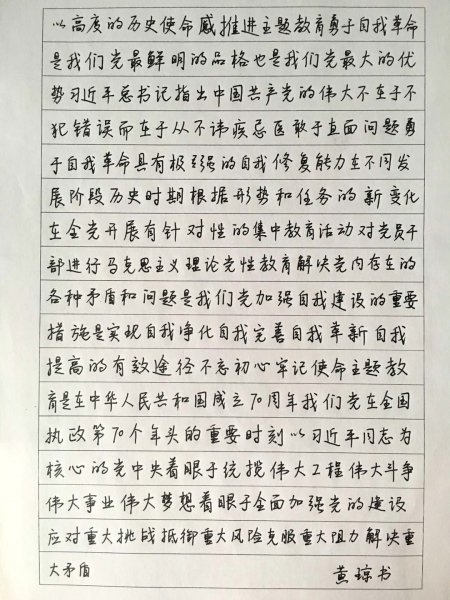 以高度的历史使命感推进主题教育勇于自我革命
是我们党最鲜明的品格也是我们党最大的优
势习近平总书记指出中国共产党的伟大不在于不
犯错误而在于从不讳疾忌医敢于直面问题勇
于自我革命具有极强的自我修复能力在不同发
展阶段历史时期根据形势和任务的新变化
在全党开展有针对性的集中教育活动对党员干
部进行马克思主义理论党性教育解决党内存在的
各种矛盾和问题是我们党加强自我建设的重要
措施是实现自我净化自我完善自我革新自我
提高的有效途径不忘初心牢记使命主题教
育是在中华人民共和国成立70周年我们党在全国
执政第70个年头的重要时刻以习近平同志为
核心的党中央着眼于统揽伟大工程伟大斗争
伟大事业伟大梦想着眼于全面加强党的建设
应对重大挑战抵御重大风险克服重大阻力解决重
大矛盾 黄琼书